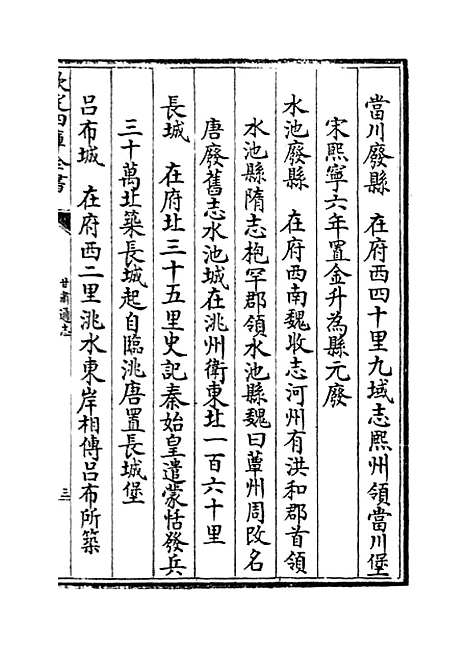 當川廢縣　在府西四十里九域志熙州領當川堡
宋熙寧六年置金升為縣元廢
水池廢縣　在府西南魏收志河州有洪和郡首領
水池縣隋志枹罕郡領水池縣魏曰蕈州周改名
唐廢舊志水池城在洮州衛東北一百六十里
長城　在府北三十五里史記秦始皇遣蒙恬發兵
三十萬北築長城起自臨洮唐置長城堡
呂布城　在府西二里洮水東岸相傳呂布所築
欽定四庫全書
甘肅通志
三